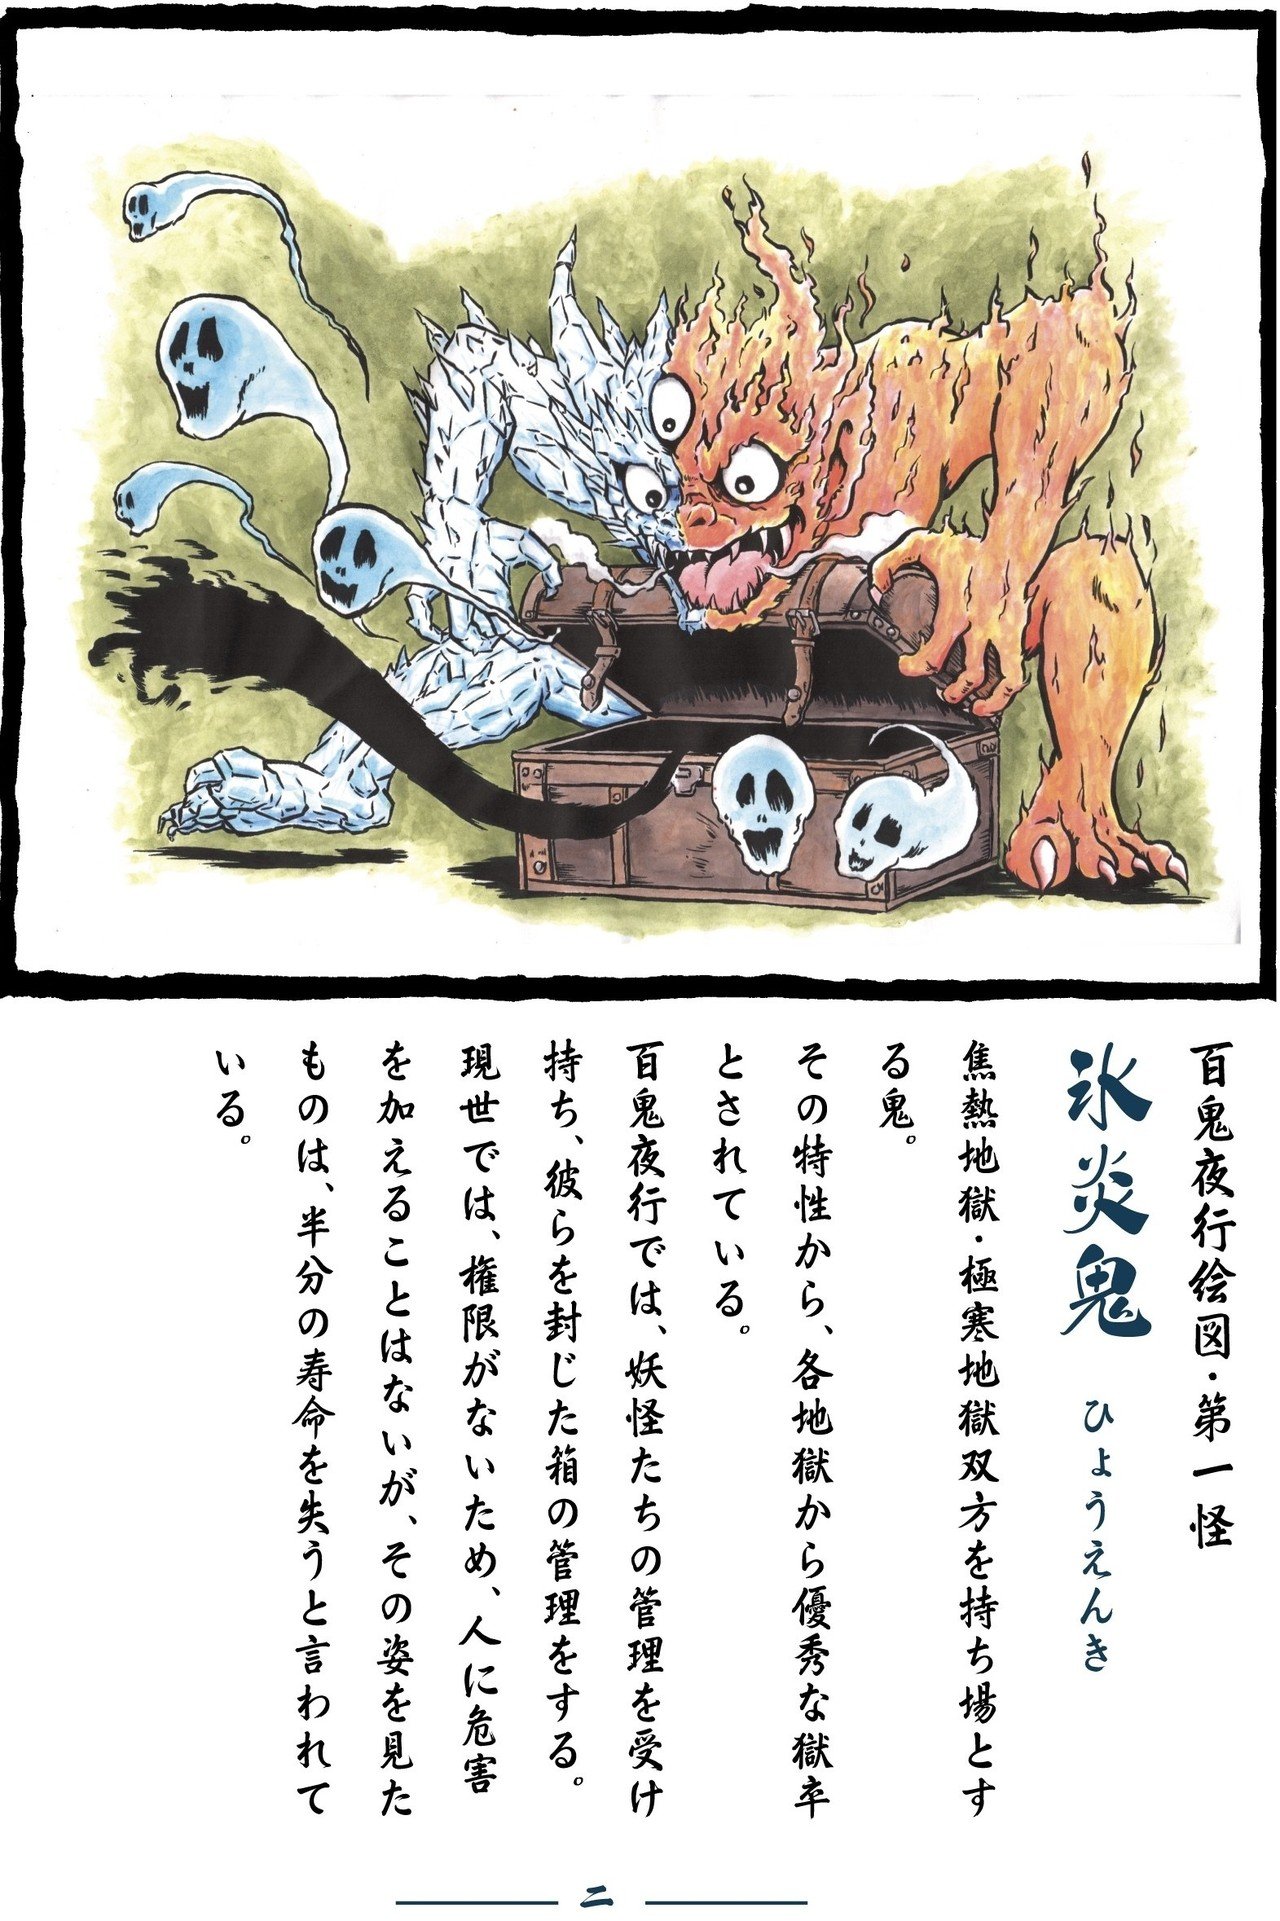 百鬼夜行絵図・第一怪
氷炎鬼 ひょうえんき
焦熱地獄・極寒地獄双方を持ち場とす
る鬼。
その特性から、各地獄から優秀な獄卒
とされている。
百鬼夜行では、妖怪たちの管理を受け
持ち、彼らを封じた箱の管理をする。
現世では、権限がないため、人に危害
を加えることはないが、その姿を見た
ものは、半分の寿命を失うと言われて
いる。
二